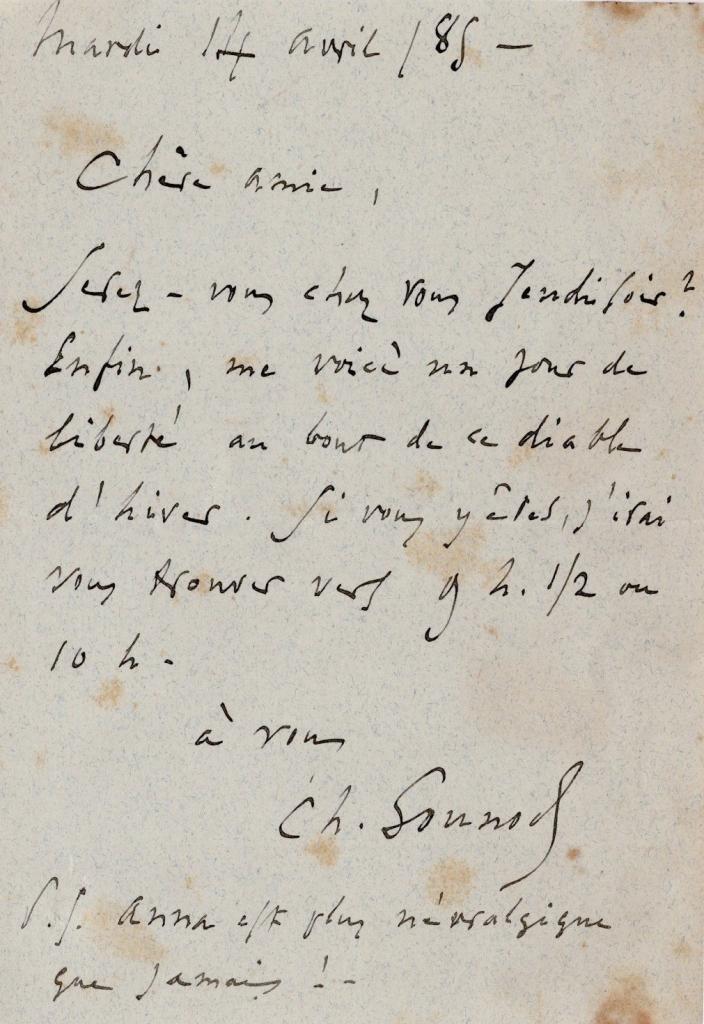 Mardi 14 avril /85 —
Chère amie,
Serez-vous chez vous Jeudi soir?
Enfin, me voici un jour de
liberté au bout de ce diable
d'hiver. Si vous y êtes, j'irai
vous trouver vers 9 h. 1/2 ou
10 h -
à vous
Ch. Gounod
P.S. Anna est plus névralgique
que jamais! -